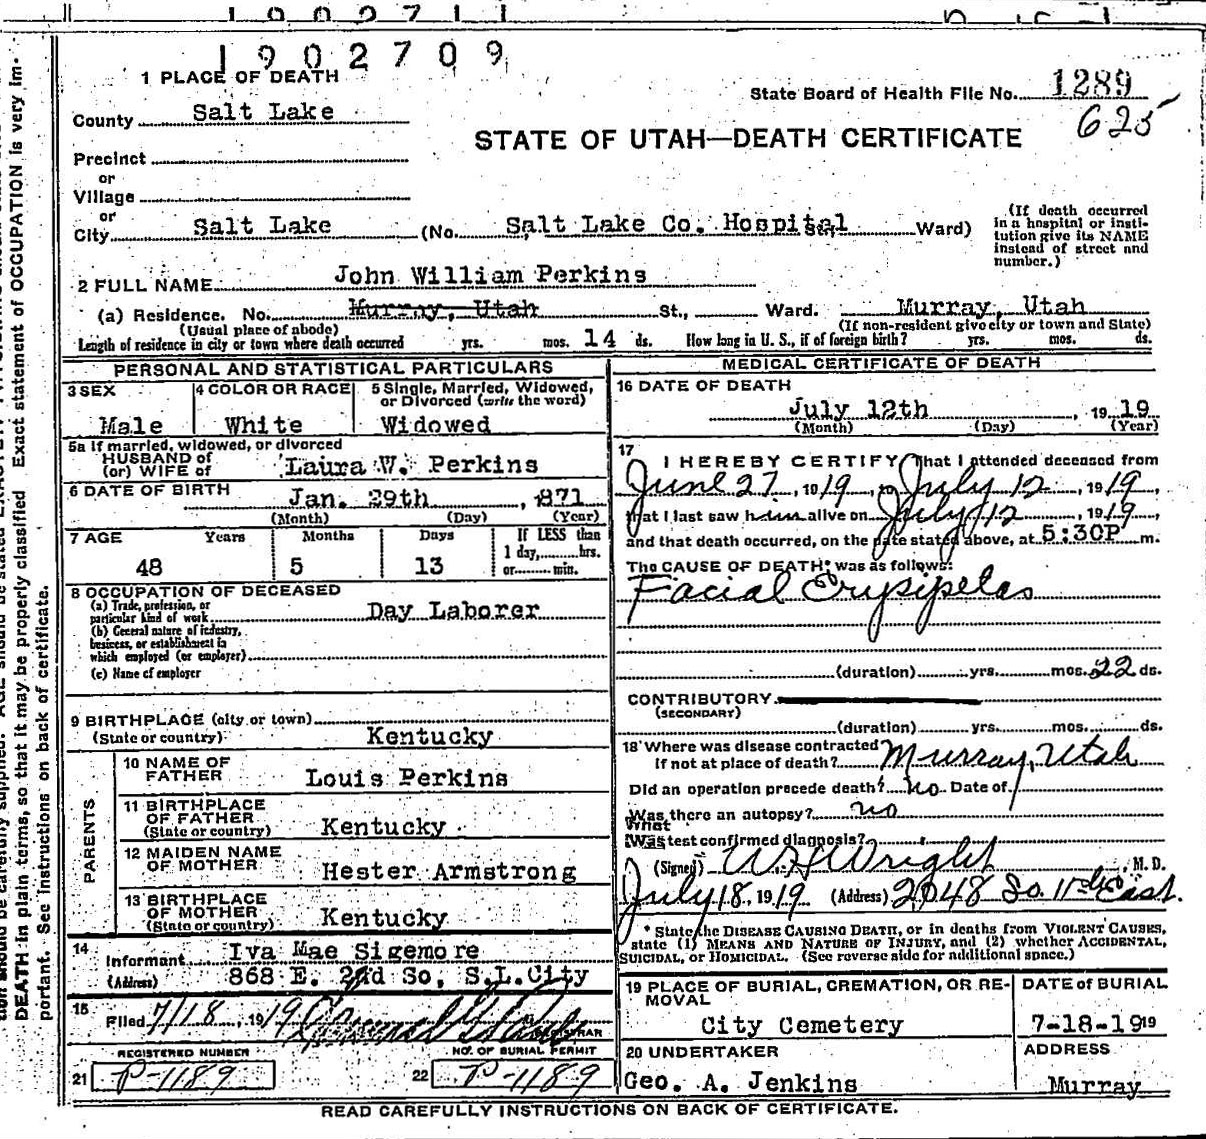 1902709
1 PLACE OF DEATH
State Board of Health File No. 1289
625
County Salt Lake
STATE OF UTAH—DEATH CERTIFICATE
Precinct
or
Village
or
City Salt Lake (No. Salt Lake Co. Hospital Ward)
(If death occurred in a hospital or institution give its NAME instead of street and number.)
2 FULL NAME John William Perkins
(a) Residence. No. Murray, Utah St., Ward. Murray, Utah
(Usual place of abode) (If non-resident give city or town and State)
Length of residence in city or town where death occurred yrs. mos. 14 ds. How long in U. S., if of foreign birth? yrs. mos. ds.
PERSONAL AND STATISTICAL PARTICULARS
3 SEX 4 COLOR OR RACE 5 Single, Married, Widowed, or Divorced (write the word)
Male White Widowed
5a If married, widowed, or divorced
HUSBAND of
(or) WIFE of Laura W. Perkins
6 DATE OF BIRTH Jan. 29th, 1871
(Month) (Day) (Year)
7 AGE Years Months Days If LESS than
1 day, hrs.
or min.
48 5 13
8 OCCUPATION OF DECEASED
(a) Trade, profession, or
particular kind of work Day Laborer
(b) General nature of industry,
business, or establishment in
which employed (or employer)
(c) Name of employer
9 BIRTHPLACE (city or town)
(State or country) Kentucky
PARENTS
10 NAME OF
FATHER Louis Perkins
11 BIRTHPLACE
OF FATHER
(State or country) Kentucky
12 MAIDEN NAME
OF MOTHER Hester Armstrong
13 BIRTHPLACE
OF MOTHER
(State or country) Kentucky
14
Informant Iva Mae Sigemore
(Address) 868 E. 2nd So. S.L.City
15
Filed 7/18, 1919
REGISTRAR
REGISTERED NUMBER NO. OF BURIAL PERMIT
21 P-1189 22 P-1189
MEDICAL CERTIFICATE OF DEATH
16 DATE OF DEATH
July 12th, 1919
(Month) (Day) (Year)
17
I HEREBY CERTIFY, That I attended deceased from
June 27, 1919, to July 12, 1919,
that I last saw him alive on July 12, 1919,
and that death occurred, on the date stated above, at 5:30P m.
The CAUSE OF DEATH* was as follows:
Facial Erysipelas
(duration) yrs. mos. 22 ds.
CONTRIBUTORY
(SECONDARY)
(duration) yrs. mos. ds.
18 Where was disease contracted
If not at place of death? Murray, Utah
Did an operation precede death? no Date of
Was there an autopsy? no
What
Was test confirmed diagnosis?
(Signed) Wright, M. D.
July 18, 1919 (Address) 2048 So. 11th East.
* State the DISEASE CAUSING DEATH, or in deaths from VIOLENT CAUSES,
state (1) MEANS AND NATURE OF INJURY, and (2) whether ACCIDENTAL,
SUICIDAL, or HOMICIDAL. (See reverse side for additional space.)
19 PLACE OF BURIAL, CREMATION, OR REMOVAL DATE of BURIAL
City Cemetery 7-18-1919
20 UNDERTAKER ADDRESS
Geo. A. Jenkins Murray
READ CAREFULLY INSTRUCTIONS ON BACK OF CERTIFICATE.
DEATH in plain terms, so that it may be properly classified Exact statement of OCCUPATION is very important. See instructions on back of certificate.